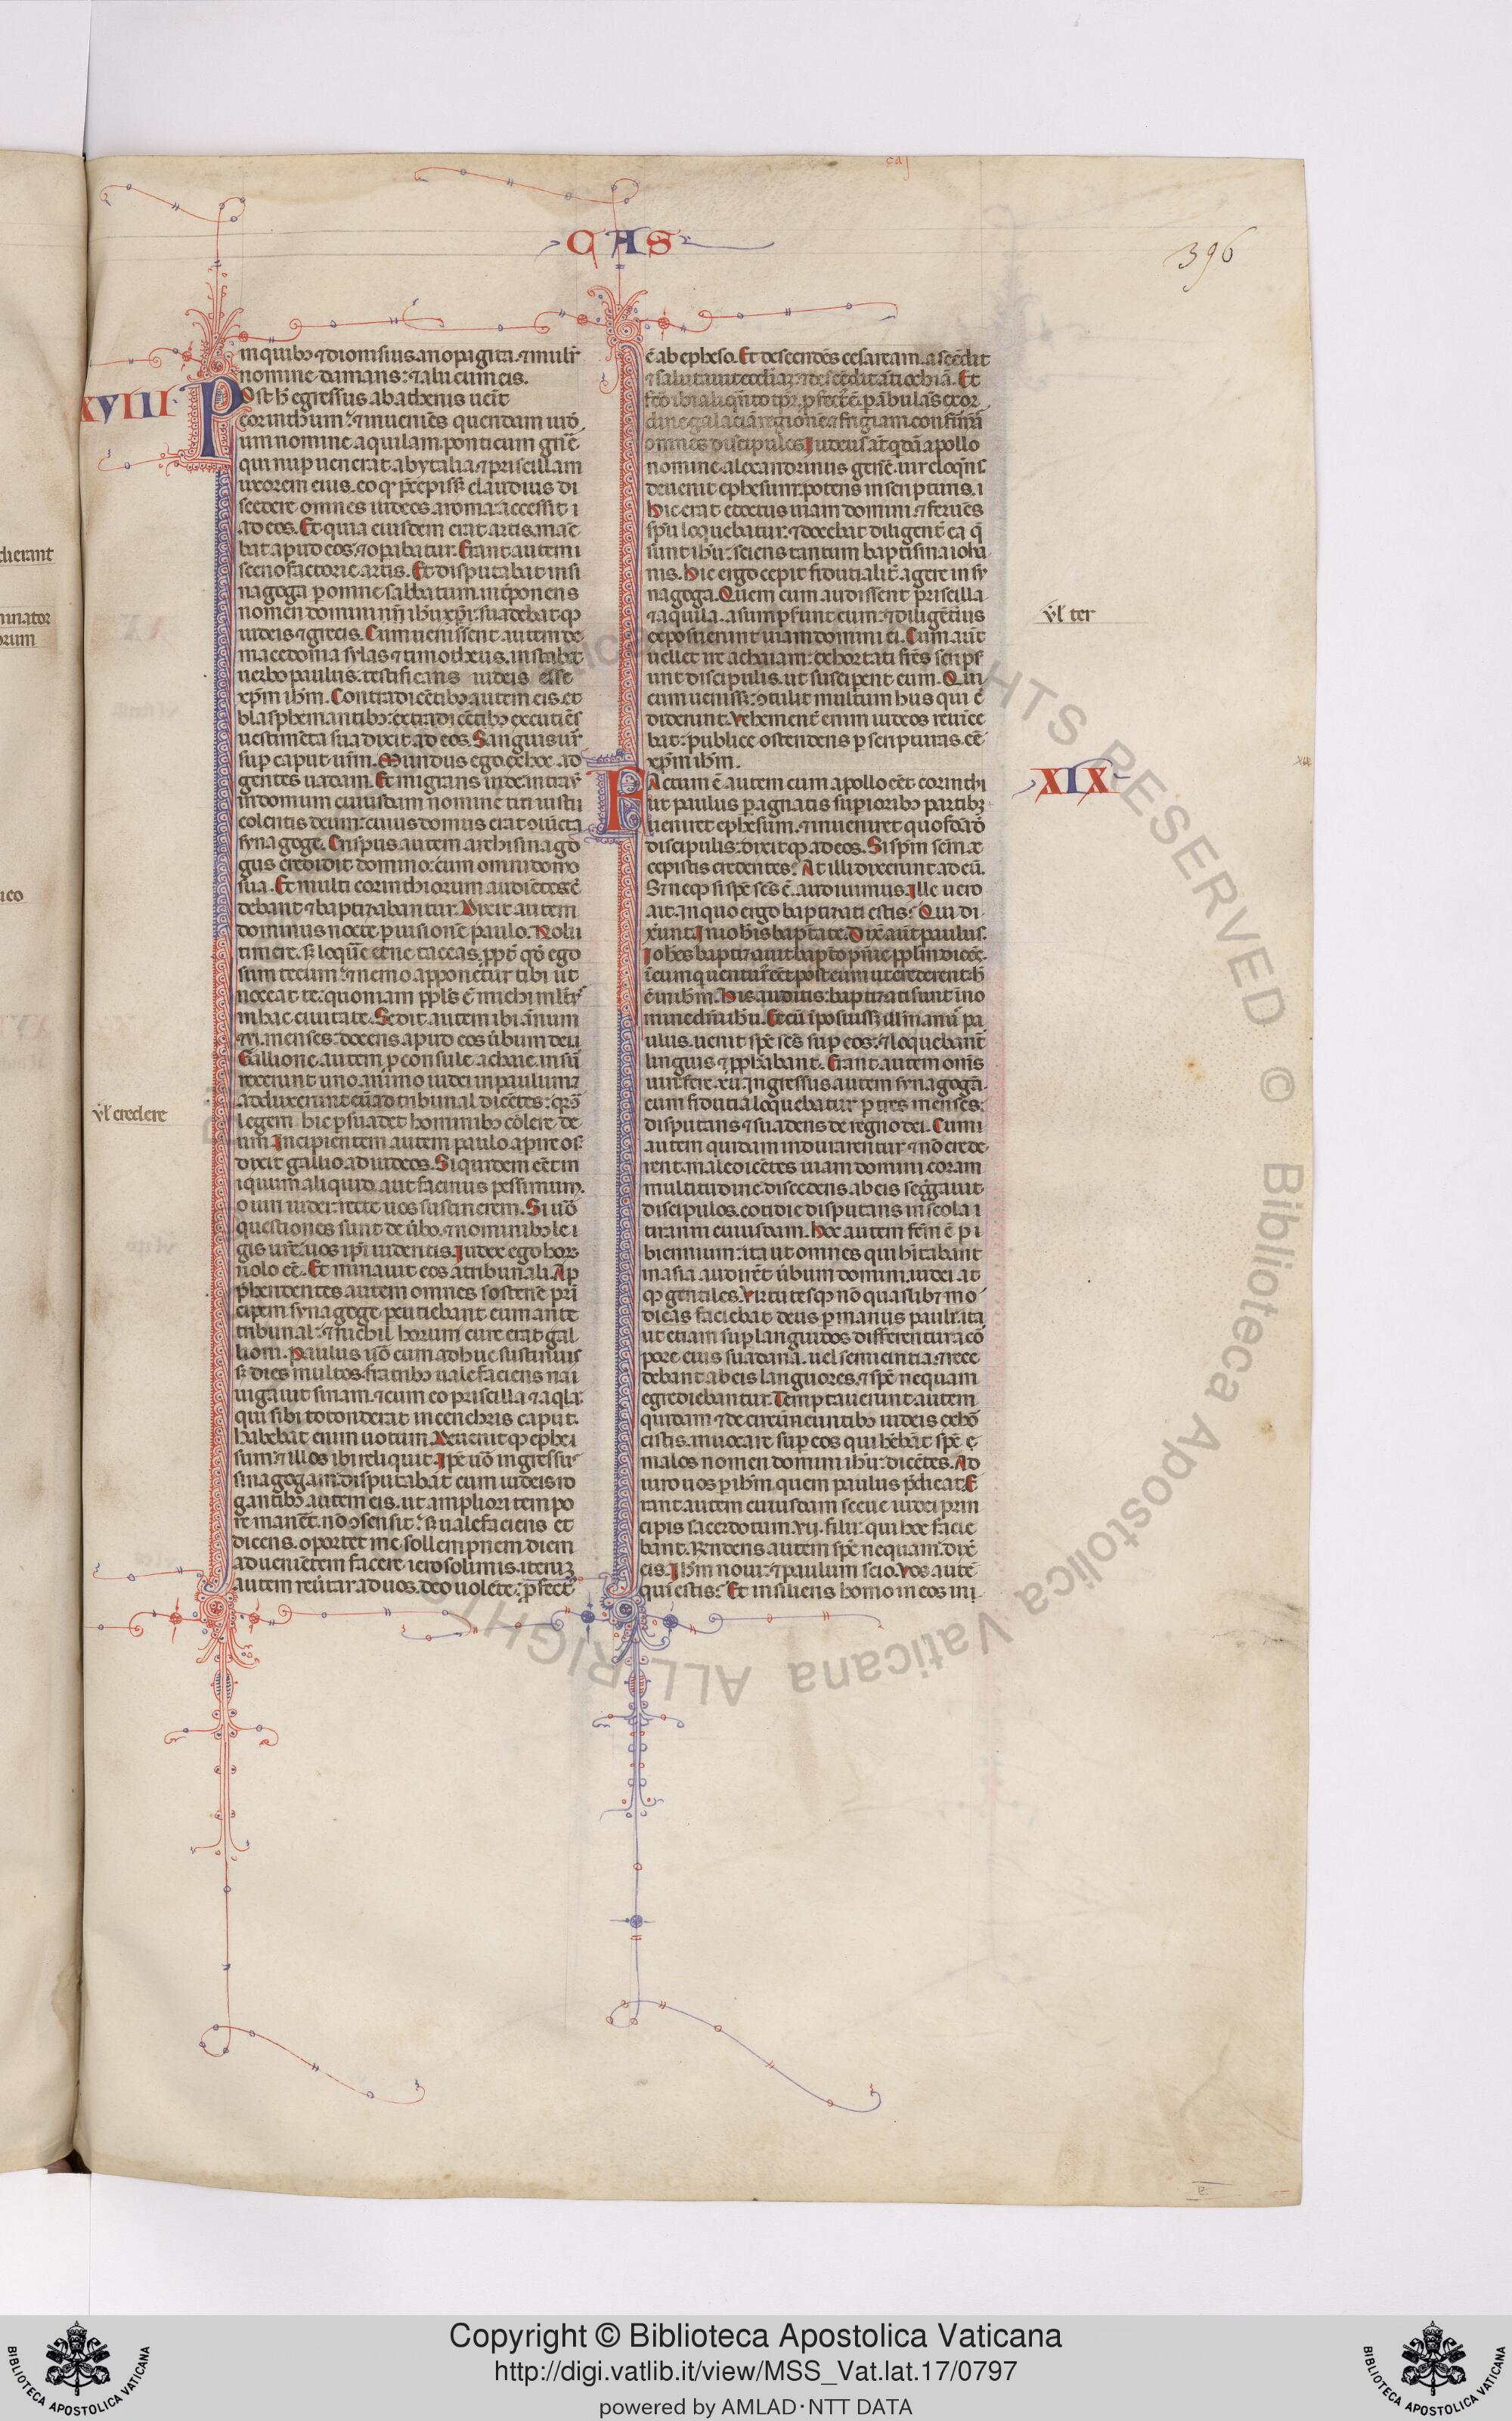 caj
C A S
396
in quibꝫ ⁊ dionisius ariopagita. ⁊ mulr̄
nomine damaris: ⁊ alii cum eis.
XVIII
Post h̄ egressus ab athenis uēit
corinthum: ⁊ inueniēs quendam iud̄
um nomine aquilam. ponticum gn̄e
qui nup uenerat ab ytalia. ⁊ priscillam
uxorem eius. eo qͥ p̄cepiss̄ claudius di
scedere omnes iudeos a roma: accessit
ad eos. Et quia eiusdem erat artis. mane
bat apud eos. ⁊ opabatur. Erant autem
scenofactorie artis. Et disputabat in si
nagoga p omne sabbatum. int̄ponens
nomen domini nr̄i ih̄u xp̄i: suadebat qꝫ
iudeis ⁊ grecis. Cum uenissent autem de
macedonia sylas ⁊ timotheus. instabat
uerbo paulus. testificans iudeis esse
xp̄m ih̄m. Contradicētibꝫ autem eis. et
blasphemantibꝫ: excutiēs
uestimēta sua dixit ad eos. Sanguis ur̄
sup caput ur̄m. Mundus ego ex hoc ad
gentes uadam. Et migrans inde intrauit
in domum cuiusdam nomine titi iusti
colentis deum: cuius domus erat ↄiūcta
synagoge. Crispus autem archisinago
gus credidit domino: cum omni domo
sua. Et multi corinthiorum audiētes c̄
debant ⁊ baptizabantur. Dixit autem
dominus nocte. p uisionē paulo. Noli
timere. s̄ loquē et ne taceas. ppt̄ qd̄ ego
sum tecum: ⁊ nemo apponetur tibi ut
noceat te: quoniam ppl̄s ē michi mltꝰ
in hac ciuitate. Sedit autem ibi ānum
⁊ vi. menses: docens apud eos ūbum dei
Gallione autem p consule achaie. insur
rexerunt uno animo iudei in paulum: ⁊
adduxerunt eū ad tribunal dicētes: qꝫ ↄ̄
vl̄ credere
legem hic psuadet hominibꝫ colere de
um Incipientem autem paulo apire os.
dixit gallio ad iudeos. Si quidem eēt in
iquum aliquid. aut facinus pessimum.
o uiri iudei: recte uos sustinerem. Si uō
questiones sunt de ūbo. ⁊ nominibꝫ le
gis ur̄e: uos ip̄i uidentis. Iudex ego horꝫ
nolo eē. Et minauit eos a tribunali. Ap
p̄hendentes autem omnes sostenē prī
cipem synagoge. peutiebant eum ante
tribunal: ⁊ nichil horum cure erat gal
lioni. Paulus uō cum adhuc sustinuis
s̄ dies multos. fratribꝫ ualefaciens na
uigauit siriam. ⁊ cum eo priscilla ⁊ aqla:
qui sibi totonderat in cenchris caput.
habebat enim uotum. Deuenit qꝫ ephe
sum: ⁊ illos ibi reliquit. Ip̄e uō ingressus
sinagogam: disputabat cum iudeis ro
gantibꝫ autem eis. ut ampliori tempo
re manēt. nō ↄsensit: s̄ ualefaciens et
dicens. oportet me sollempnem diem
aduenietem facere ierosolimis. iterum
autem reūtar ad uos. deo uolēte. pfect̄ꝰ
ē ab epheso. Et descendēs cesaream. ascēdit
⁊ salutauit eccl̄iaꝫ. ⁊ descēdit ātiochiā. Et
fc̄o ibi aliqn̄to tp̄r. pfectꝰ ē. pābulās ex or
dine galaciā regionē ⁊ frigiam. confirmās
omnes discipulos. Iudeus aūt qdā apollo
nomine. alexandrinus genē. uir eloqns.
deuenit ephesum: potens in scripturis.
Hic erat edoctus uiam domini. ⁊ feruēs
spū loquebatur. ⁊ docebat diligent̄ ea q̄
sunt ih̄u: sciens tantum baptisma ioha
nis. Hic ergo cepit fiducialit̄ agere in sy
nagoga. Quem cum audissent priscilla
⁊ aquila. asumpserunt eum: ⁊ diligētius
vl̄ ter
exposuerunt uiam domini ei. Cum aūt
uellet ire achaiam: exhortati fr̄es scrips̄
unt discipulis. ut susciperent eum. Qui
cum ueniss̄: ↄtulit multum hiis qui c̄
diderunt. Vehement̄ enim iudeos reuice
bat: publice ostendens p scripturas. eē
xp̄m ih̄m.
XIX
Factum ē autem cum apollo eēt corinthi
ut paulus p agratis supioribꝫ partibꝫ
ueniret ephesum. ⁊ inueniret quosdā d̄
discipulis: dixit qꝫ ad eos. Si spm̄ scm̄ ac
cepistis credentes? At illi dixerunt ad eū.
S; neqꝫ si spc̄ scs̄ ē. audiuimus. Ille uero
ait. in quo ergo baptizati estis? Qui di
xērunt. In ioh̄is baptate. Dix̄ aūt paulus.
Ioh̄es baptizauit bapto pn̄ie pplm̄ dicēs.
ī eum qui uentur̄ eēt post eum ut crederent: h̄
ē in ih̄m. His auditis: baptizati sunt ī no
mine dn̄i ih̄u. Et cū īposuiss̄ illis manū pa
ulus. uenit spc̄ scs̄ sup eos. ⁊ loquebant̄
linguis ⁊ pph̄abant. Erant autem oms̄
uiri fere. xii. Ingressus autem synagogā.
cum fiducia loquebatur p tres menses:
disputans ⁊ suadens de regno dei. Cum
autem quidam indurarentur ⁊ nō crede
rent. maledicētes uiam domini coram
multitudine. discedens ab eis seg̃gauit
discipulos. cotidie disputans in scola
tiranni cuiusdam. Hoc autem fc̄m ē p
biennium: ita ut omnes qui hītabant
in asia audirēt ūbum domini. iudei at
qꝫ gentiles. Virtutesqꝫ nō quaslibꝫ mo
dicas faciebat deus p manus pauli: ita
ut etiam sup languidos differentur a cō
pore eius sudaria. uel semicintia: ⁊ rece
debant ab eis languores. ⁊ spc̄ nequam
egrediebantur. Temptauerunt autem
quidam ⁊ de circūeuntibꝫ iudeis exhō
cistis. inuocare sup eos qui hēbāt spc̄
malos nomen domini ih̄u: dicētes. Ad
iuro uos p ih̄m. quem paulus p̄dicat. E
rant autem cuiusdam sceue iudei prin
cipis sacerdotum. vii. filii: qui hoc facie
bant. Rn̄dens autem spc̄ nequam. dix̄
eis. Ih̄m noui: ⁊ paulum scio. Vos autē
qui estis? Et insiliens homo in eos in
Copyright © Biblioteca Apostolica Vaticana
http://digi.vatlib.it/view/MSS_Vat.lat.17/0797
powered by AMLAD·NTT DATA